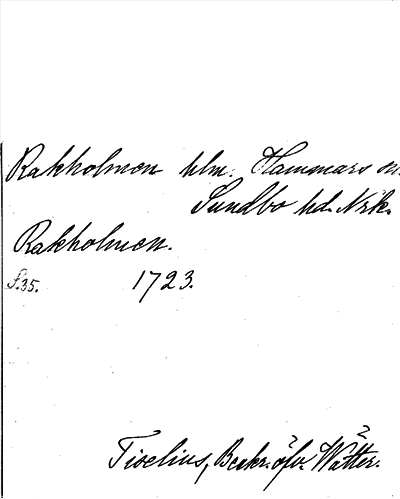 Rakholmen hlm. Hammars sn.
Sundbo hd. Nrk.
Rakholmen.
s.35. 1723.
Tiselius, Beskr. öfv. Wätter.